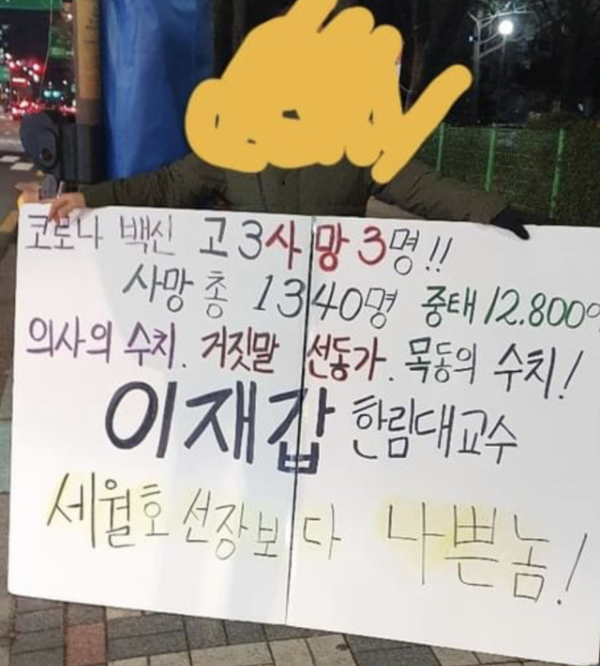 코로나 백신 고3사망3명!!
사망 총 1340명 중태 12.800
의사의 수치. 거짓말 선동가. 목동의 수치!
이재갑 한림대교수
세월호 선장보다 나쁜놈!